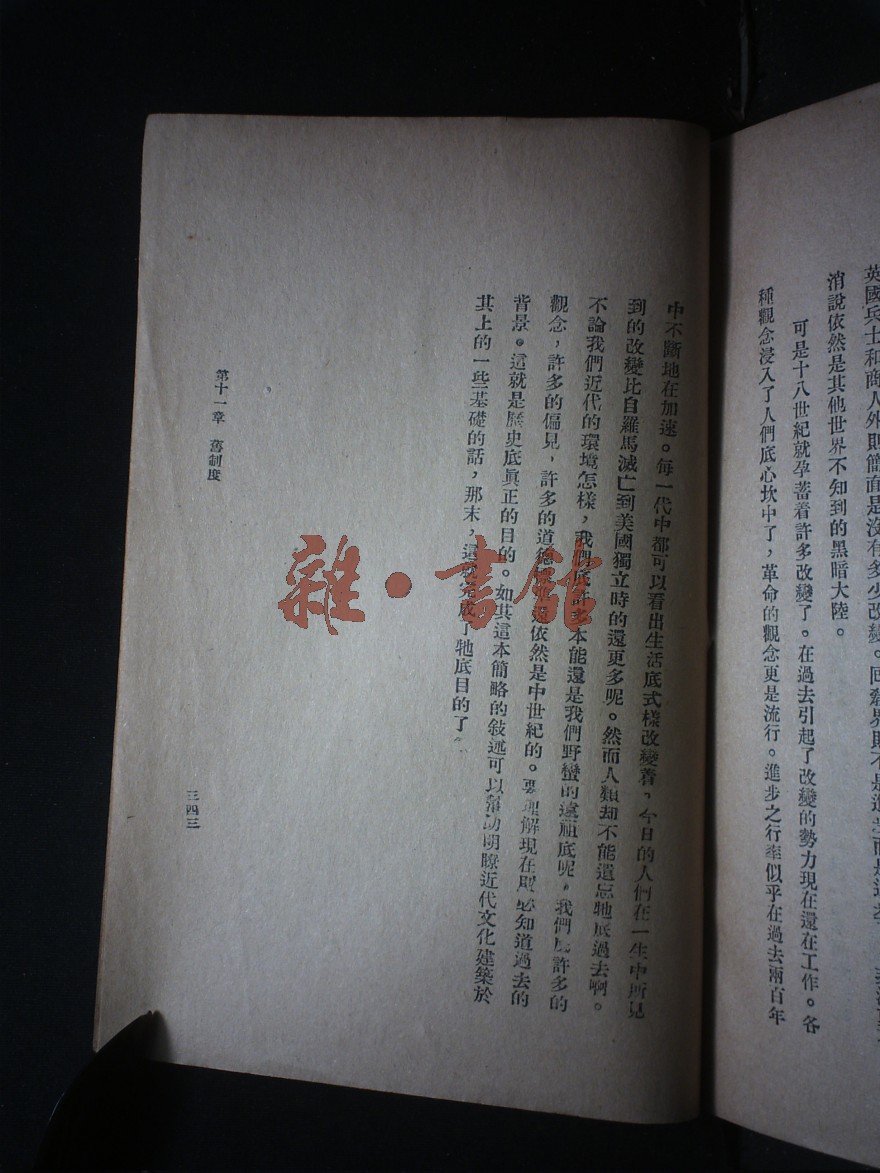 英國兵士和商人外則簡直是沒有多少改變。
消說依然是其他世界不知到的黑暗大陸。
可是十八世紀就孕蓄着許多改變了。在過去引起了改變的勢力現在還在工作。各
種觀念浸入了人們底心坎中了,革命的觀念更是流行。進步之行率似乎在過去兩百年
中不斷地在加速。每一代中都可以看出生活底式樣改變着,今日的人們在一生中所見
到的改變比自羅馬滅亡到美國獨立時的還更多呢。然而人類却不能遺忘牠底過去啊。
不論我們近代的環境怎樣,我們底許多本能還是我們野蠻的遠祖底呢。我們底許多的
觀念,許多的偏見,許多的道德 還依然是中世紀的。要理解現在則必知道過去的
背景。這就是歷史底眞正的目的。如其這本簡略的敍述可以幫助明瞭近代文化建築於
其上的一些基礎的話,那末,這就完成了牠底目的了。
第十一章 舊制度
三四三
雜·書館